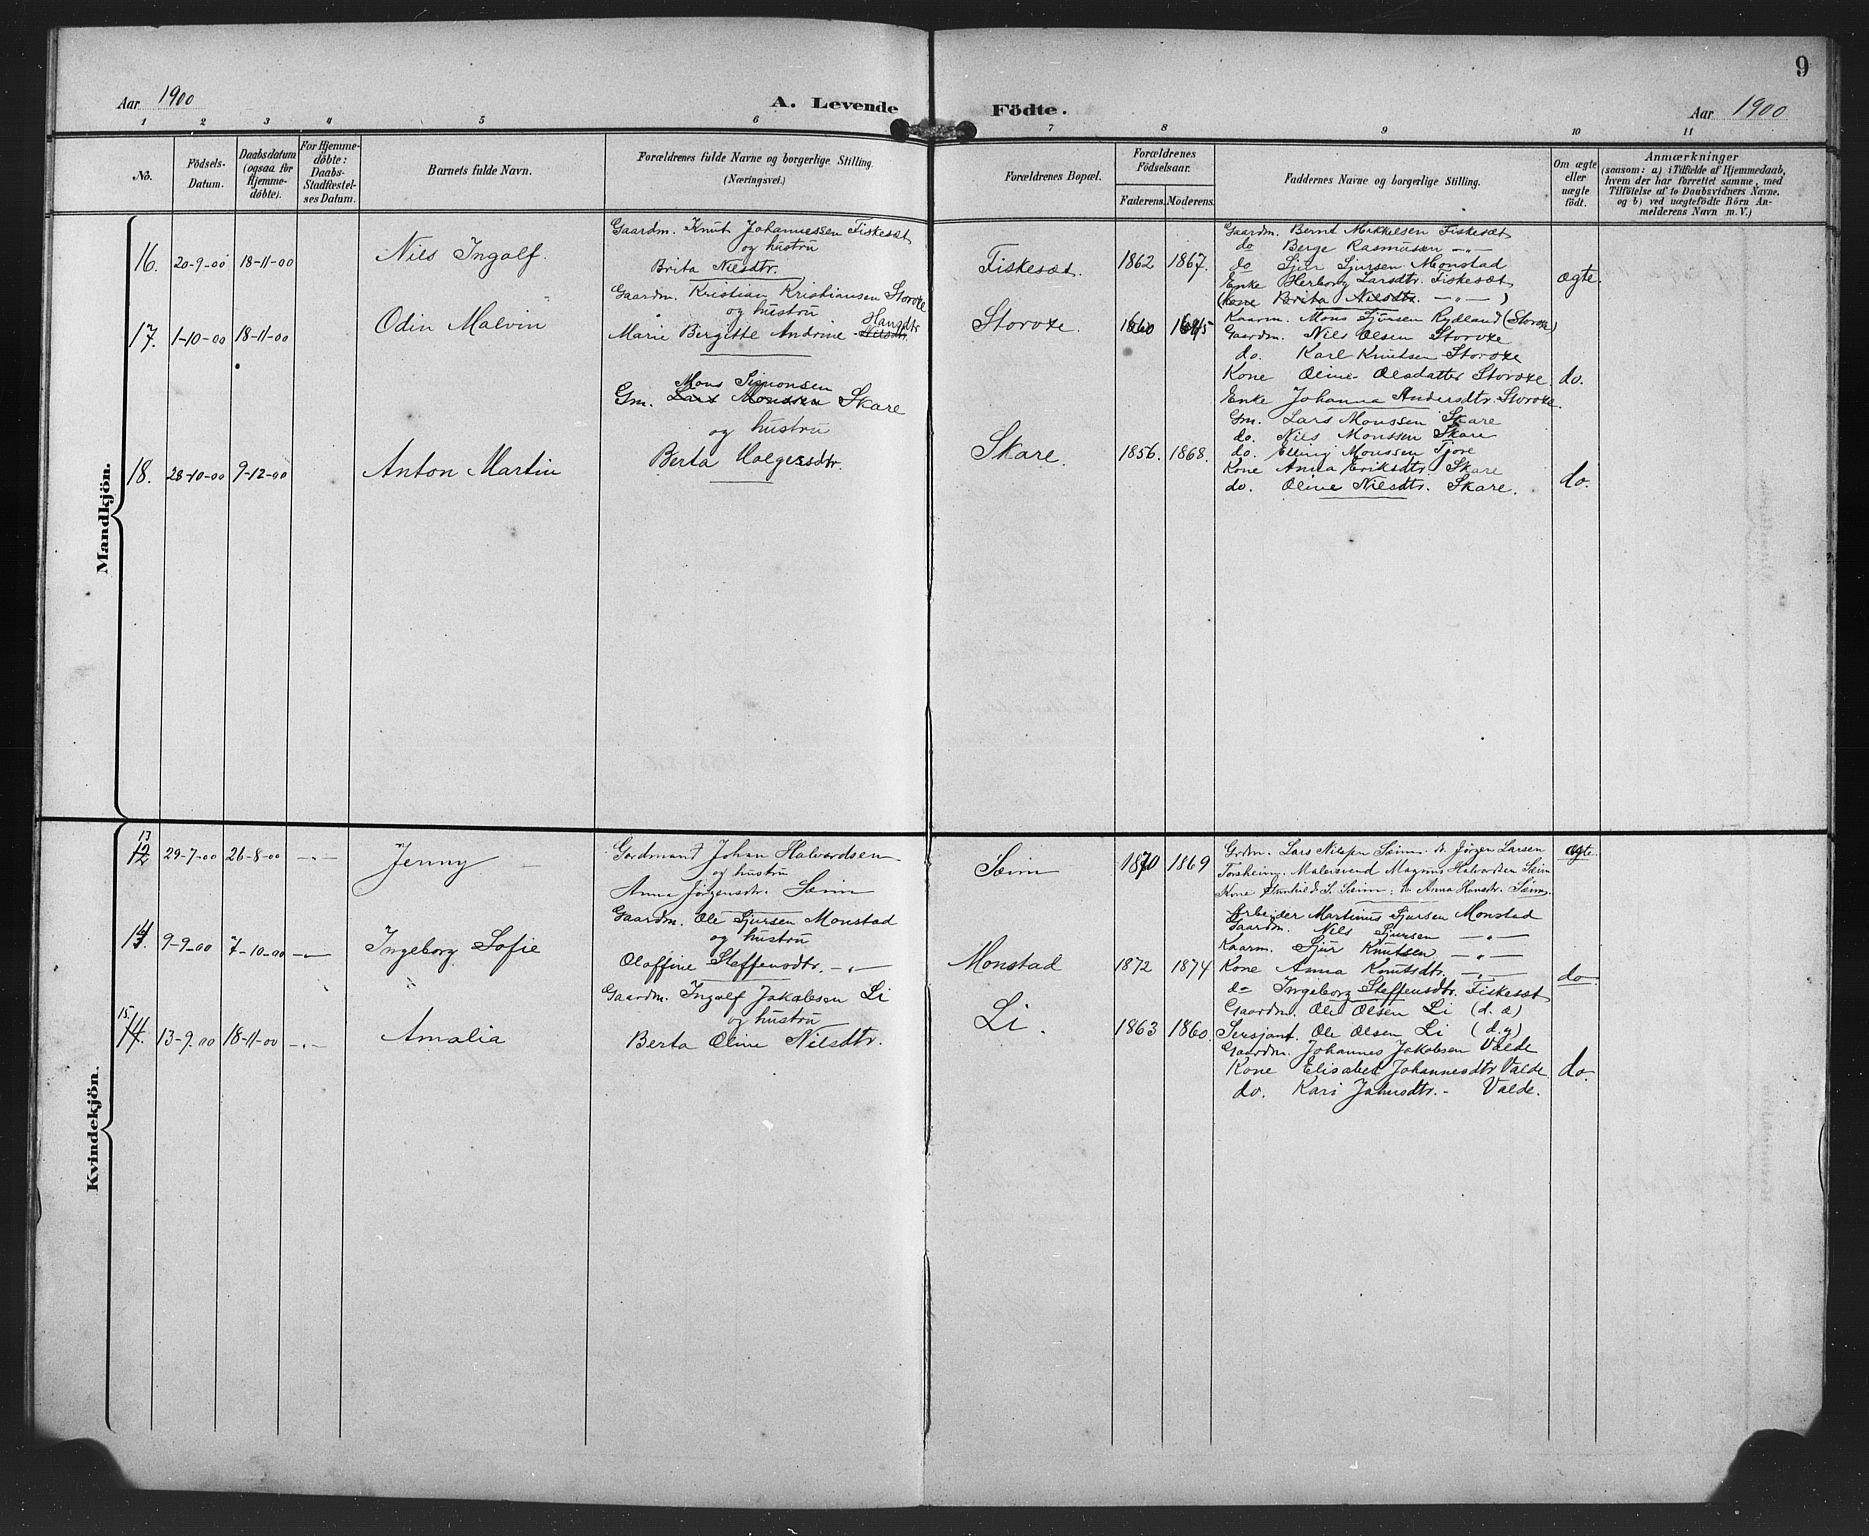 9
Aar 1900
A. Levende Födte.
Aar 1900
1 2 3 4 5 6 7 8 9 10 11
No.
Födsels-
Datum.
Daabsdatum
(ogsaa for
Hjemme-
döbte).
For Hjemme-
döbte:
Daabs-
Stadfæstel-
ses Datum.
Barnets fulde Navn.
Forældrenes fulde Navne og borgerlige Stilling.
(Næringsvei.)
Forældrenes Bopæl.
Forældrenes
Födselsaar.
Faderens. Moderens.
Faddernes Navne og borgerlige Stilling.
Om ægte
eller
uægte
födt.
Anmærkninger
(saasom: a) i Tilfælde af Hjemmedaab,
hvem der har forrettet samme, med
Tilföielse af to Daabsvidners Navne,
og b) ved uægtefödte Börn An-
melderens Navn m. V.)
Mandkjön.
16. 20-9-00 18-11-00 Nils Ingolf.
Gaardm. Knut Johannessen Fiskesæt
og hustru
Brita Nilsdtr.
Fiskesæt. 1862 1867.
Gaardm. Bernt Mikkelsen Fiskesæt
do Berge Rasmusen -„-
do Sjur Sjursen Monstad
Enke Herborg Larsdtr. Fiskesæt
(kone Brita Nilsdtr. -„-)
ægte.
17. 1-10-00 18-11-00 Odin Malvin
Gaardm. Kristian Kristiansen Storøxe
og hustru
Marie Bergitte Andrine Nilsdtr.
Storøxe.
Kaarm. Mons Sjursen Rydland (Storøxe)
Gaardm. Nils Olsen Storøxe
do. Karl Knutsen Storøxe
Kone Oline Olsdatter Storøxe
Enke Johanna Andersdtr. Storøxe.
do.
18. 28-10-00 9-12-00 Anton Martin
Mons Simonsen
Gm. Lars Monssen Skare
og hustru
Berta Holgersdtr.
Skare. 1856. 1868.
Gm. Lars Monssen Skare
do. Nils Monssen Skare
do. Elling Monssen
Kone Anna Eriksdtr. Skare
do. Oline Nilsdtr. Skare.
do.
Kvindekjön.
13
12 29-7-00 26-8-00 -„- Jenny
Gardmand Johan Halvordsen
og hustru
Anna Jørgensdtr. Sæim
Sæim 1870 1869
Grdm. Lars Nilssen Sæim. do Jørgen Larsen
Forsheim. Malersvend Magnus Halvordsen Sæim
Kone S. Sæim; do Anna Hansdtr. Sæim.
ægte.
14 9-9-00 7-10-00 -„- Ingeborg Sofie
Gaardm. Ole Sjursen Monstad
og hustru
Oloffine Steffensdtr. -„-
Monstad 1872 1874
Arbeider Martinus Sjursen Monstad
Gaardm. Nils Sjursen -„-
Kaarm. Sjur Knutsen -„-
Kone Anna Knutsdtr. -„-
do Ingeborg Steffensdtr. Fiskesæt
do
15.
14. 13-9.00 18-11-00 -„- Amalia
Gaardm. Ingolf Jakobsen Li
og hustru
Berta Oline Nilsdtr.
Li. 1863 1860.
Gaardm. Ole Olsen Li (d. æ)
Sersjant. Ole Olsen Li (d. y)
Gaardm. Johannes Jakobsen Valde
Kone Elisabet Johannesdtr Valde
do. Kari Jakobsdtr. - Valde.
do.